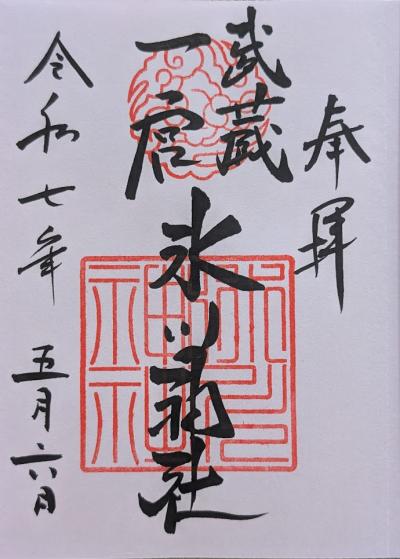 奉拝
武蔵
一宮
氷川神社
令和七年
五月六日
氷川
神社